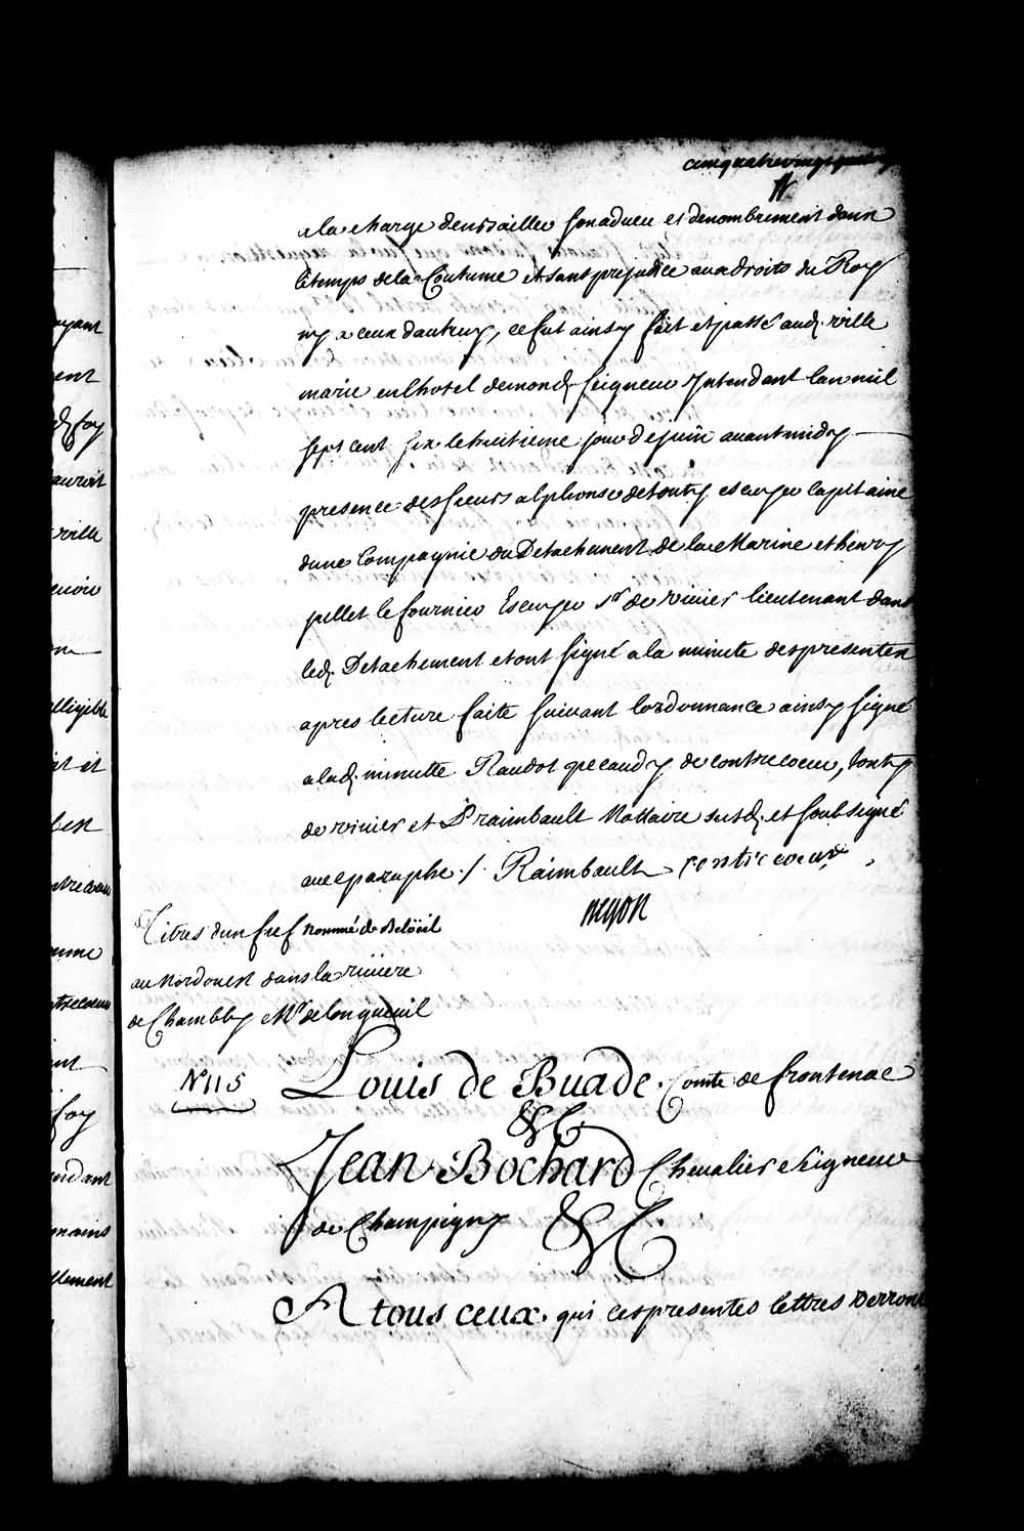 cinq quatre vingt
a la charge denbailler son adveu et denombrement dans
le temps de la Coutume et sans prejudice aux droits du Roy
ny a ceux dautruy, ce fut ainsy fait et passé aud. ville
marie en lhotel de mond. seigneur Intendant lan mil
sept cent six le huitieme jour de juin avant midy
presence des sieurs alphonse detonty escuyer Capitaine
dune Compagnie du Detachement de la Marine et henry
pillet le fournier Escuyer Sr. de vinier lieutenant dans
led. Detachement et ont signé a la minute des presentes
apres lecture faite suivant lordonnance ainsy signé
a lad. minutte Raudot pecaudy de contrecoeur, tonty
de vinier et P raimbault Nottaire susd. et soubsigné
avec paraphe ./. Raimbault contrecoeur
begon
Titres d'un fief nommé de Belöeil
au Nordouest dans la riviere
de Chambly Mr. de longueuil
No. 115
Louis de Buade. Comte de frontenac
&C.
Jean Bochard Chevalier Seigneur
de Champigny &C.
A tous ceux. qui ces presentes lettres verront
yant
ent
d. foy
auroit
ville
lligible
contrecoeur
foy
ndant
mains
llement